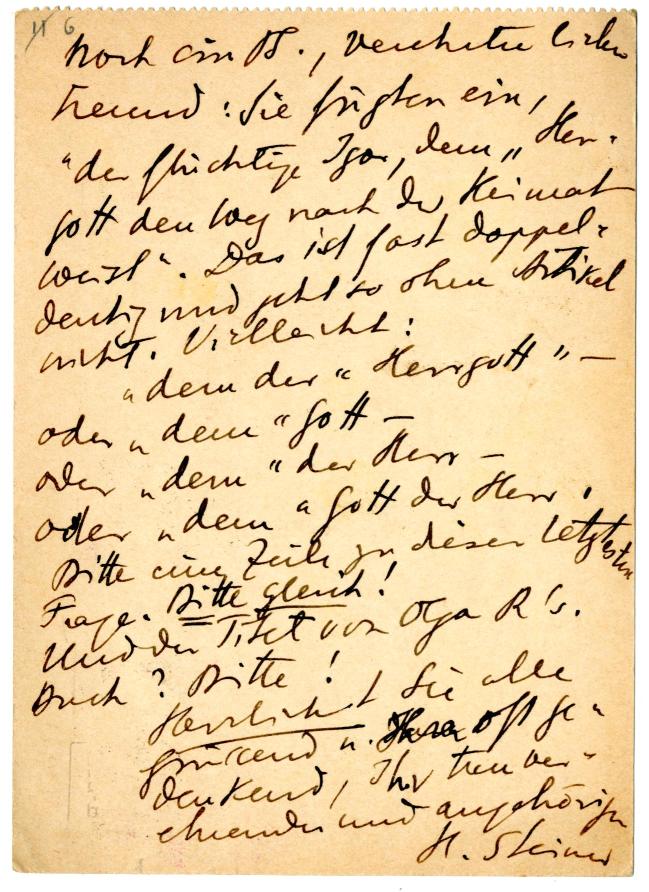 11 6
Noch ein PS., verehrter lieber
Freund: Sie fügten ein,
"der flüchtige Igor, dem „Herr-
gott den Weg nach der Heimat
weist". Das ist fast doppel-
deutig und geht so ohne Artikel
nicht. Vielleicht:
„dem der" Herrgott" –
oder „dem" Gott –
oder „dem" der Herr –
oder „dem" Gott der Herr.
Bitte eine Zeile zu dieser letztesten
Frage. Bitte gleich!
Und der Titel von Olga R's.
Buch? Bitte!
Herzlichst Sie alle
grüssend u. Ihrer oft ge-
denkend, Ihr treu ver-
ehrender und angehöriger
H. Steiner